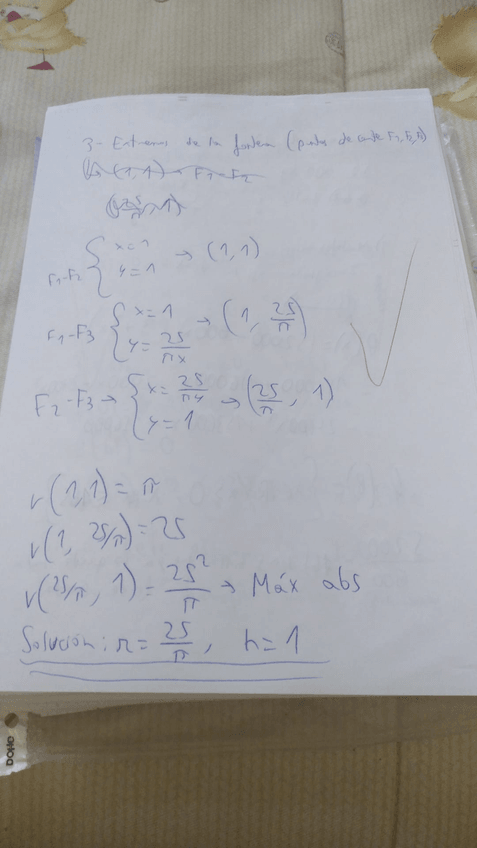 3- Extremos de la frontera (puntos de corte F1, F2, F3)
(1,1) → F1-F2
F1-F2 { x=1 → (1,1)
y=1
F1-F3 { x=1 → (1, 25/π)
y= 25/πx
F2-F3 → { x= 25/πy → (25/π, 1)
y=1
v(1,1) = π
v(1, 25/π) = 25
v(25/π, 1) = 25²/π → Máx abs
Solución: r= 25/π, h=1
DOHE